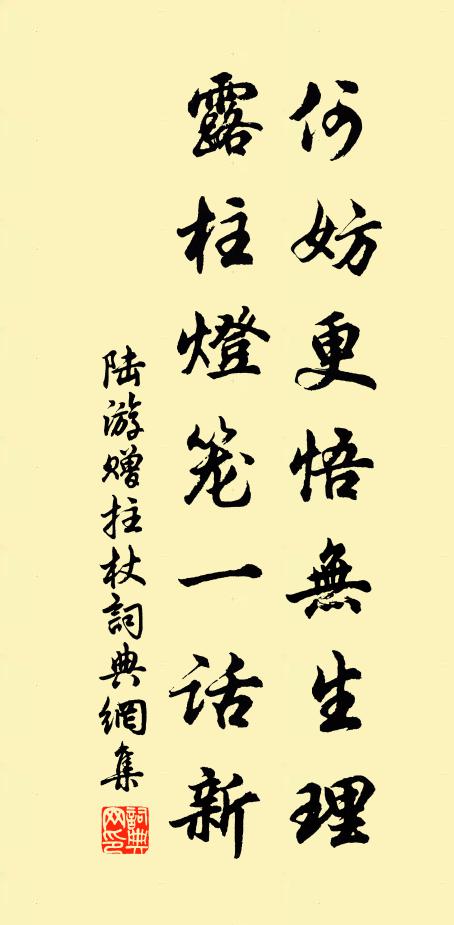 何妨更悟無生理
露柱燈笼一话新
陆游赠拄杖詞典網集
詞典网印